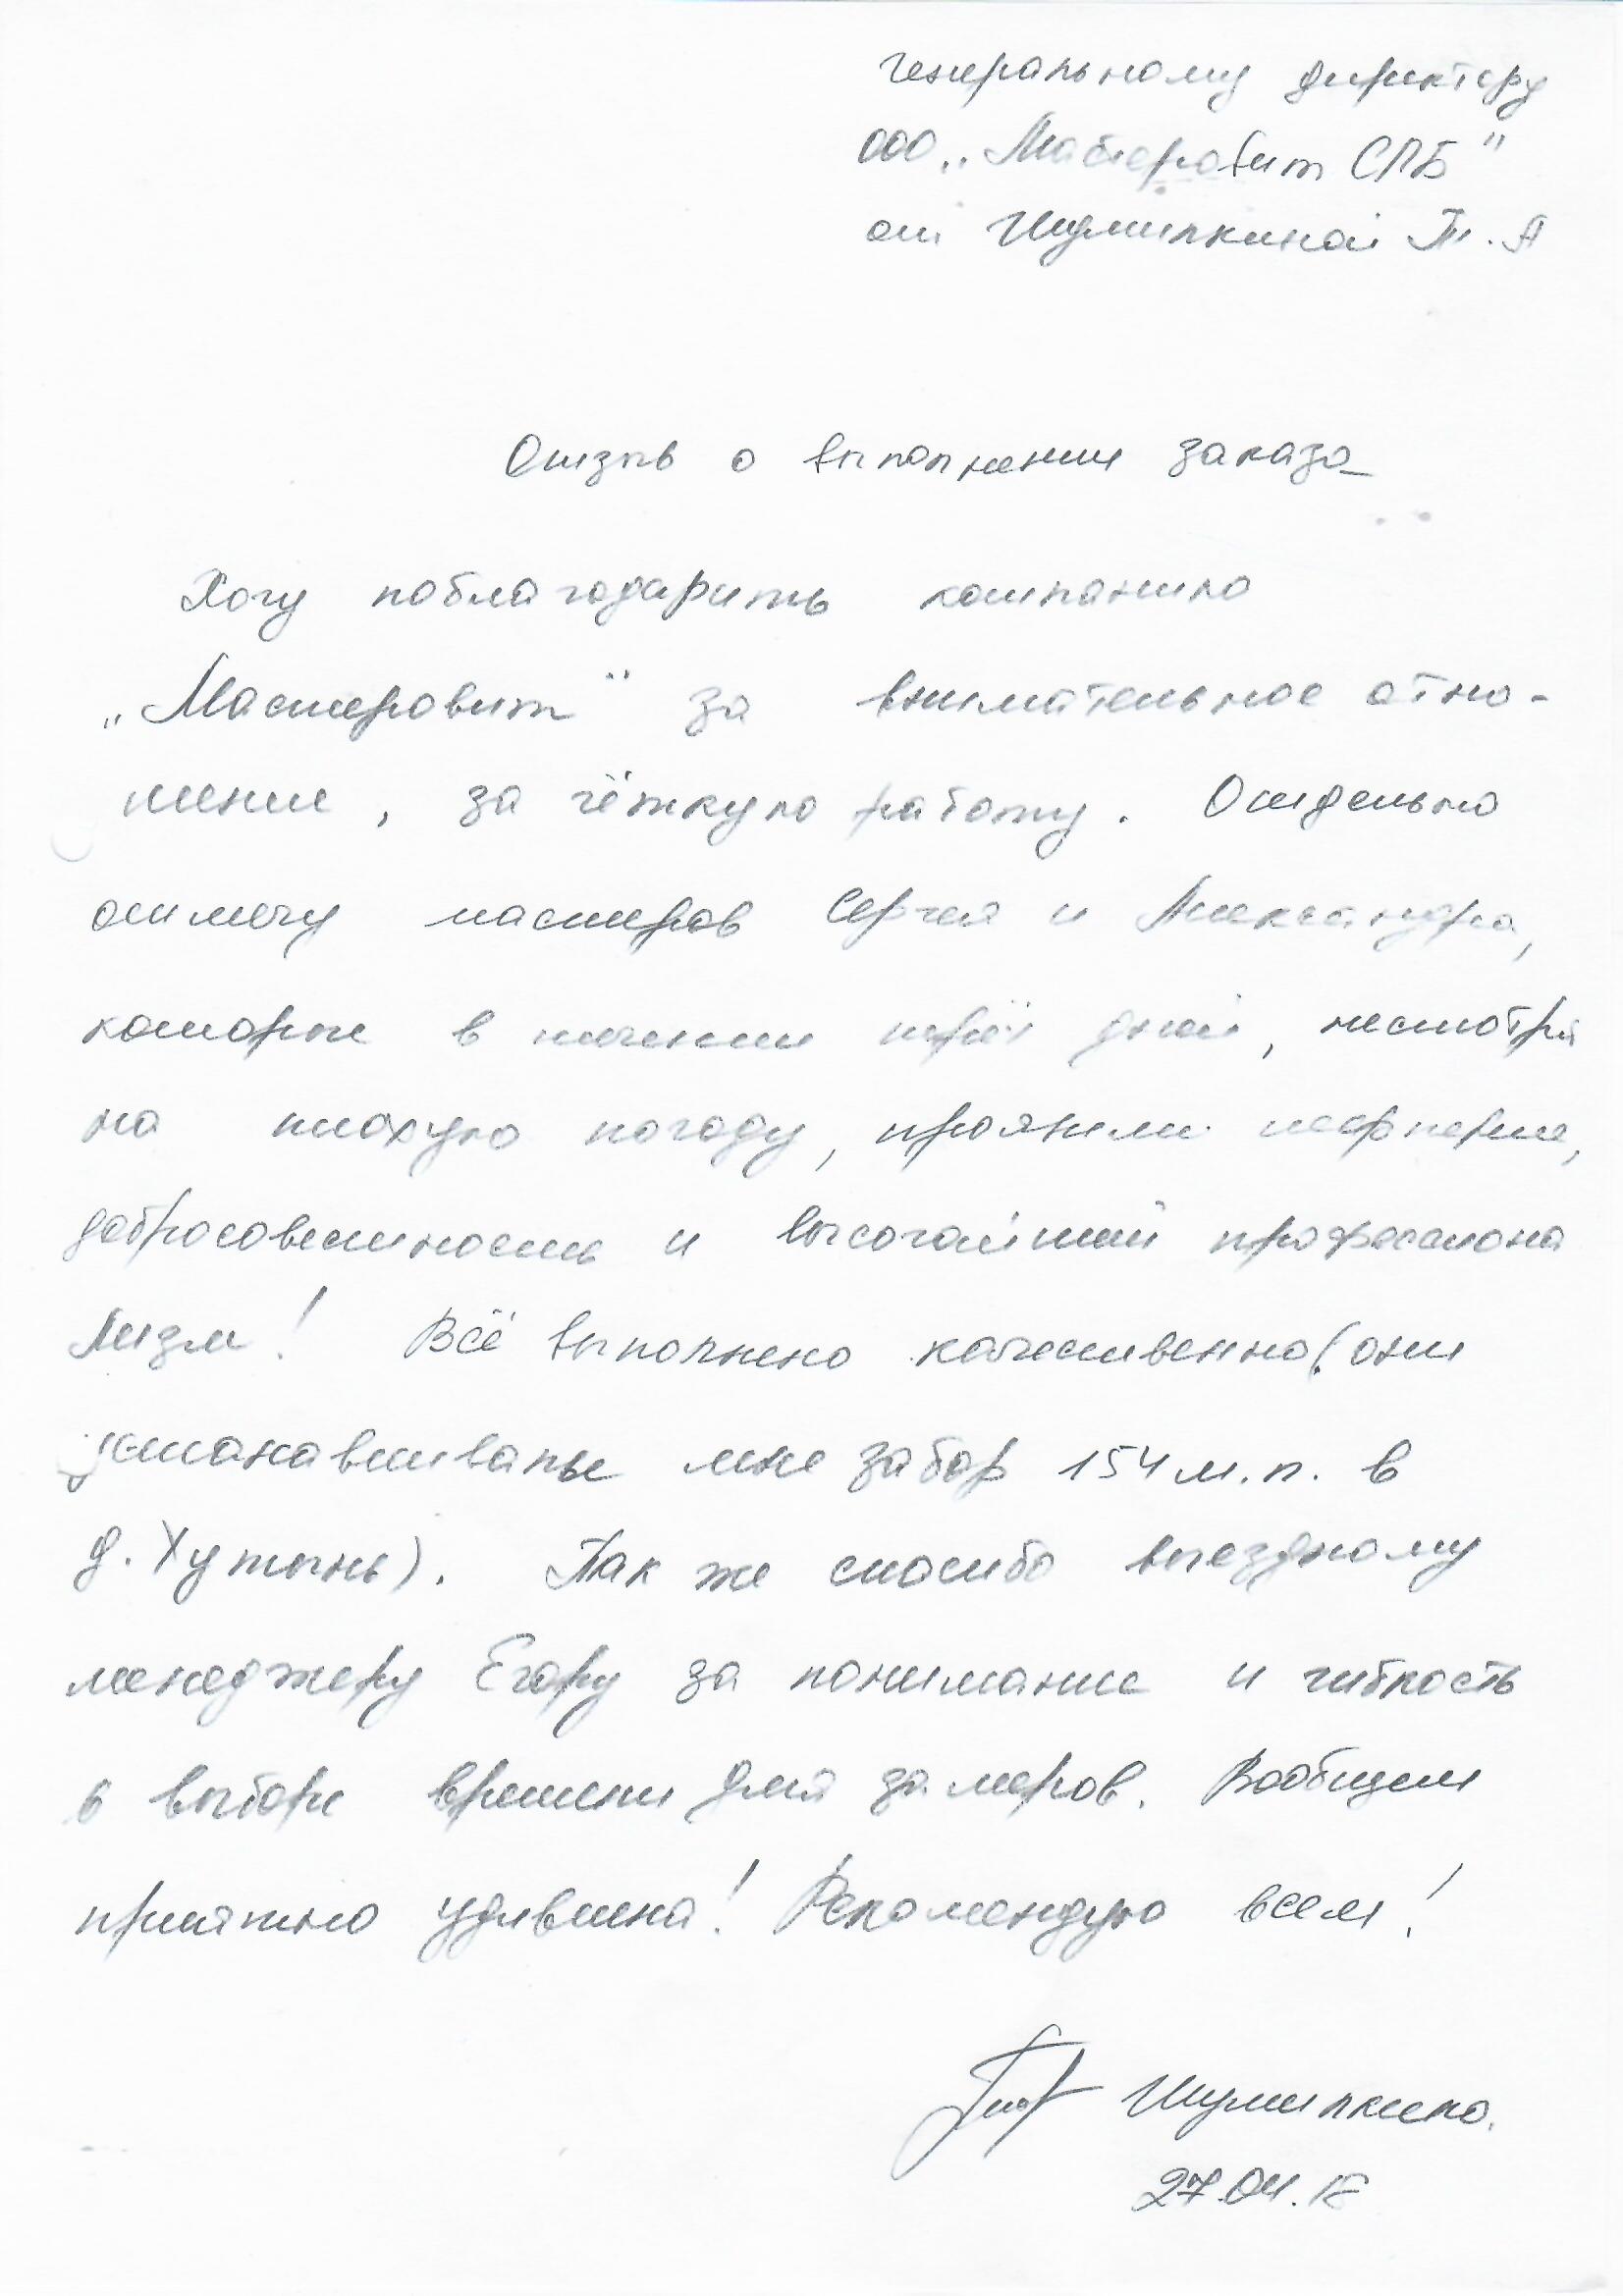 Генеральному директору
ООО „Мастеровит СПБ"
от Шумилкиной Т.А
Отзыв о выполнении заказа
Хочу поблагодарить компанию
„Мастеровит" за внимательное отно-
шение, за чёткую работу. Отдельно
отмечу мастеров Сергея и Александра,
которые в течении трёх дней, несмотря
на плохую погоду, проявили терпение,
добросовестность и высочайший профессиона
лизм! Всё выполнено качественно (они
устанавливали мне забор 154 м.п. в
д. Хутынь). Так же спасибо выездному
менеджеру Егору за понимание и гибкость
в выборе времени для замеров. Вообщем
приятно удивлена! Рекомендую всем!
Шумилкина.
27.04.18